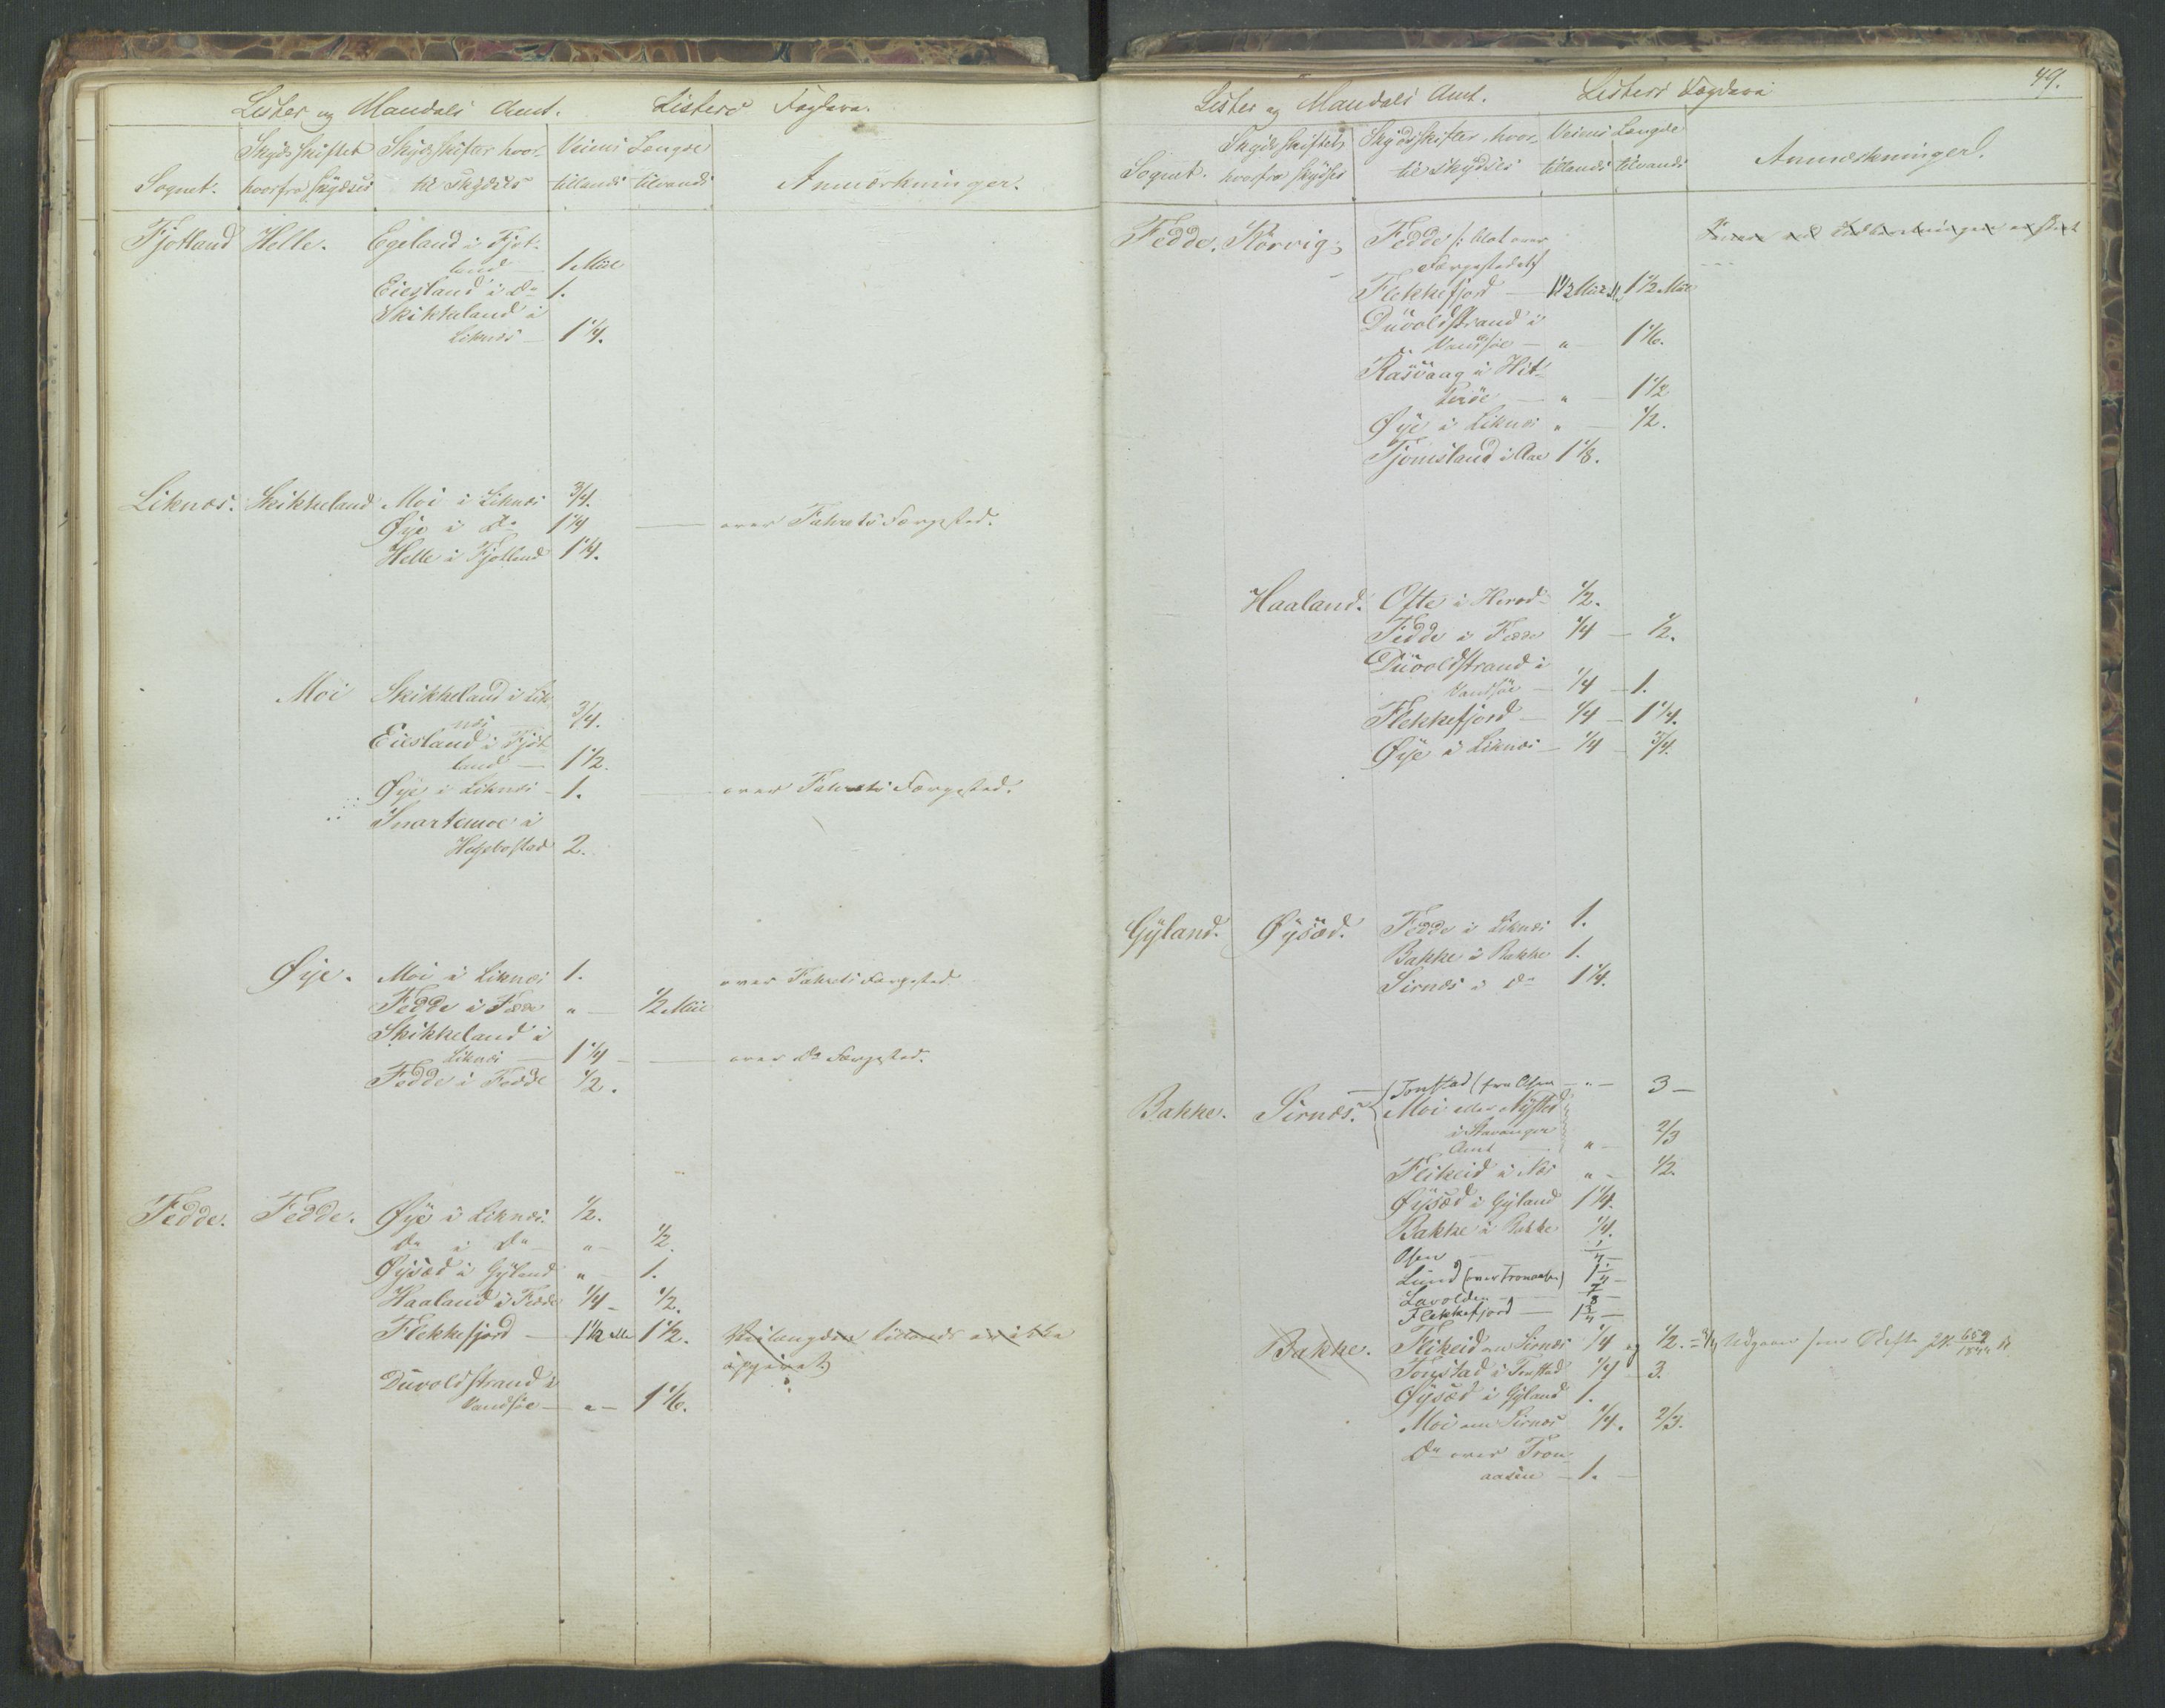 Lister og Mandals Amt. Listers Fogderi.
Sognet. Skydsskiftet hvorfra skydses Skydsskifter hvor- til skydses Veiens Længde tillands tilvands Anmærkninger.
Fjotland Helle. Egeland i Fjot-
land — 1 Miil
Eiesland i do 1.
Skikkeland i
Liknæs — 1 1/4.
Liknæs. Skikkeland Moi i Liknæs 3/4.
Øye i do 1 1/4 — over Færgested.
Helle i Fjotland 1 1/4.
Moi Skikkeland i Lik-
næs 3/4.
Eiesland i Fjot-
land — 1 1/2.
Øye i Liknæs — 1. — over Færgested.
Snartemoe i
Hegebostad 2.
Øye. Moi i Liknæs 1. over Færgested.
Fedde i Fedde " — 1/2 Miil
Skikkeland i
Liknæs — 1 1/4 — — over do Færgested.
Fedde i Fedde 1/2.
Fedde. Fedde. Øye i Liknæs. 1/2.
do i do " — 1/2.
Øysæd i Gyland " — 1.
Haaland i Fedde 1/4 — 1/2.
Flekkefjord — 1 1/2 eller 1 1/2. Veilængden tillands er ikke
opgivet.
Duvoldstrand i
Vandsøe — " — 1 1/6.
49.
Lister og Mandals Amt. Listers Fogderi
Sognet. Skydsskiftet hvorfra skydses Skydsskifter, hvor- til skydses Veiens Længde tillands tilvands Anmærkninger.
Fedde. Størvig. Fedde /: blot over
Færgestedet :/
Flekkefjord — 1 1/2 Miil 1 1/2 Miil
Duvoldstrand i
Vandsøe — " — 1 1/6.
Rasvaag i Hit-
terøe — " — 1 1/2
Øye i Liknæs " — 1/2.
Tjomsland i Aae 1 1/8.
Haaland. Ofte i Herod 1/2.
Fedde i Fedde 1/4 — 1/2.
Duvoldstrand i
Vandsøe — 1/4 — 1.
Flekkefjord — 1/4 — 1 1/4.
Øye i Liknæs — 1/4 — 3/4.
Gyland. Øysæd. Fedde i Liknæs 1.
Bakke i Bakke 1.
Sirnæs i do 1 1/4.
Bakke. Sirnæs. Tonstad (fra Osen — " — 3 —
Moi eller Nysted
i Stavanger
Amt " — 2/3
Flikeid i Næs " — 1/2.
Øysæd i Gyland 1 1/4.
Bakke i Bakke 1/4.
Osen — 1/4 —
Lund (over Tronaasen) 1 1/4 —
Lavolden — 7/8 —
Flekkefjord — 1 3/4 —
Bakke. Flikeid over Sirnæs 1/4 og 1/2. = 3/4 Udgaaer som
Tonstad i Tonstad 1/4 — 3.
Øysæd i Gyland 1.
Moi over Sirnæs 1/4. 2/3.
do over Tron-
aasen — 1. —